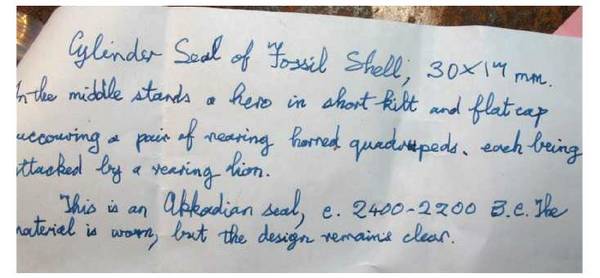 Cylinder Seal of Fossil Shell; 30×17 mm.
In the middle stands a hero in short kilt and flat cap
succouring a pair of rearing horned quadrupeds, each being
attacked by a rearing lion.
This is an Akkadian seal, c. 2400-2200 B.C. The
material is worn, but the design remains clear.